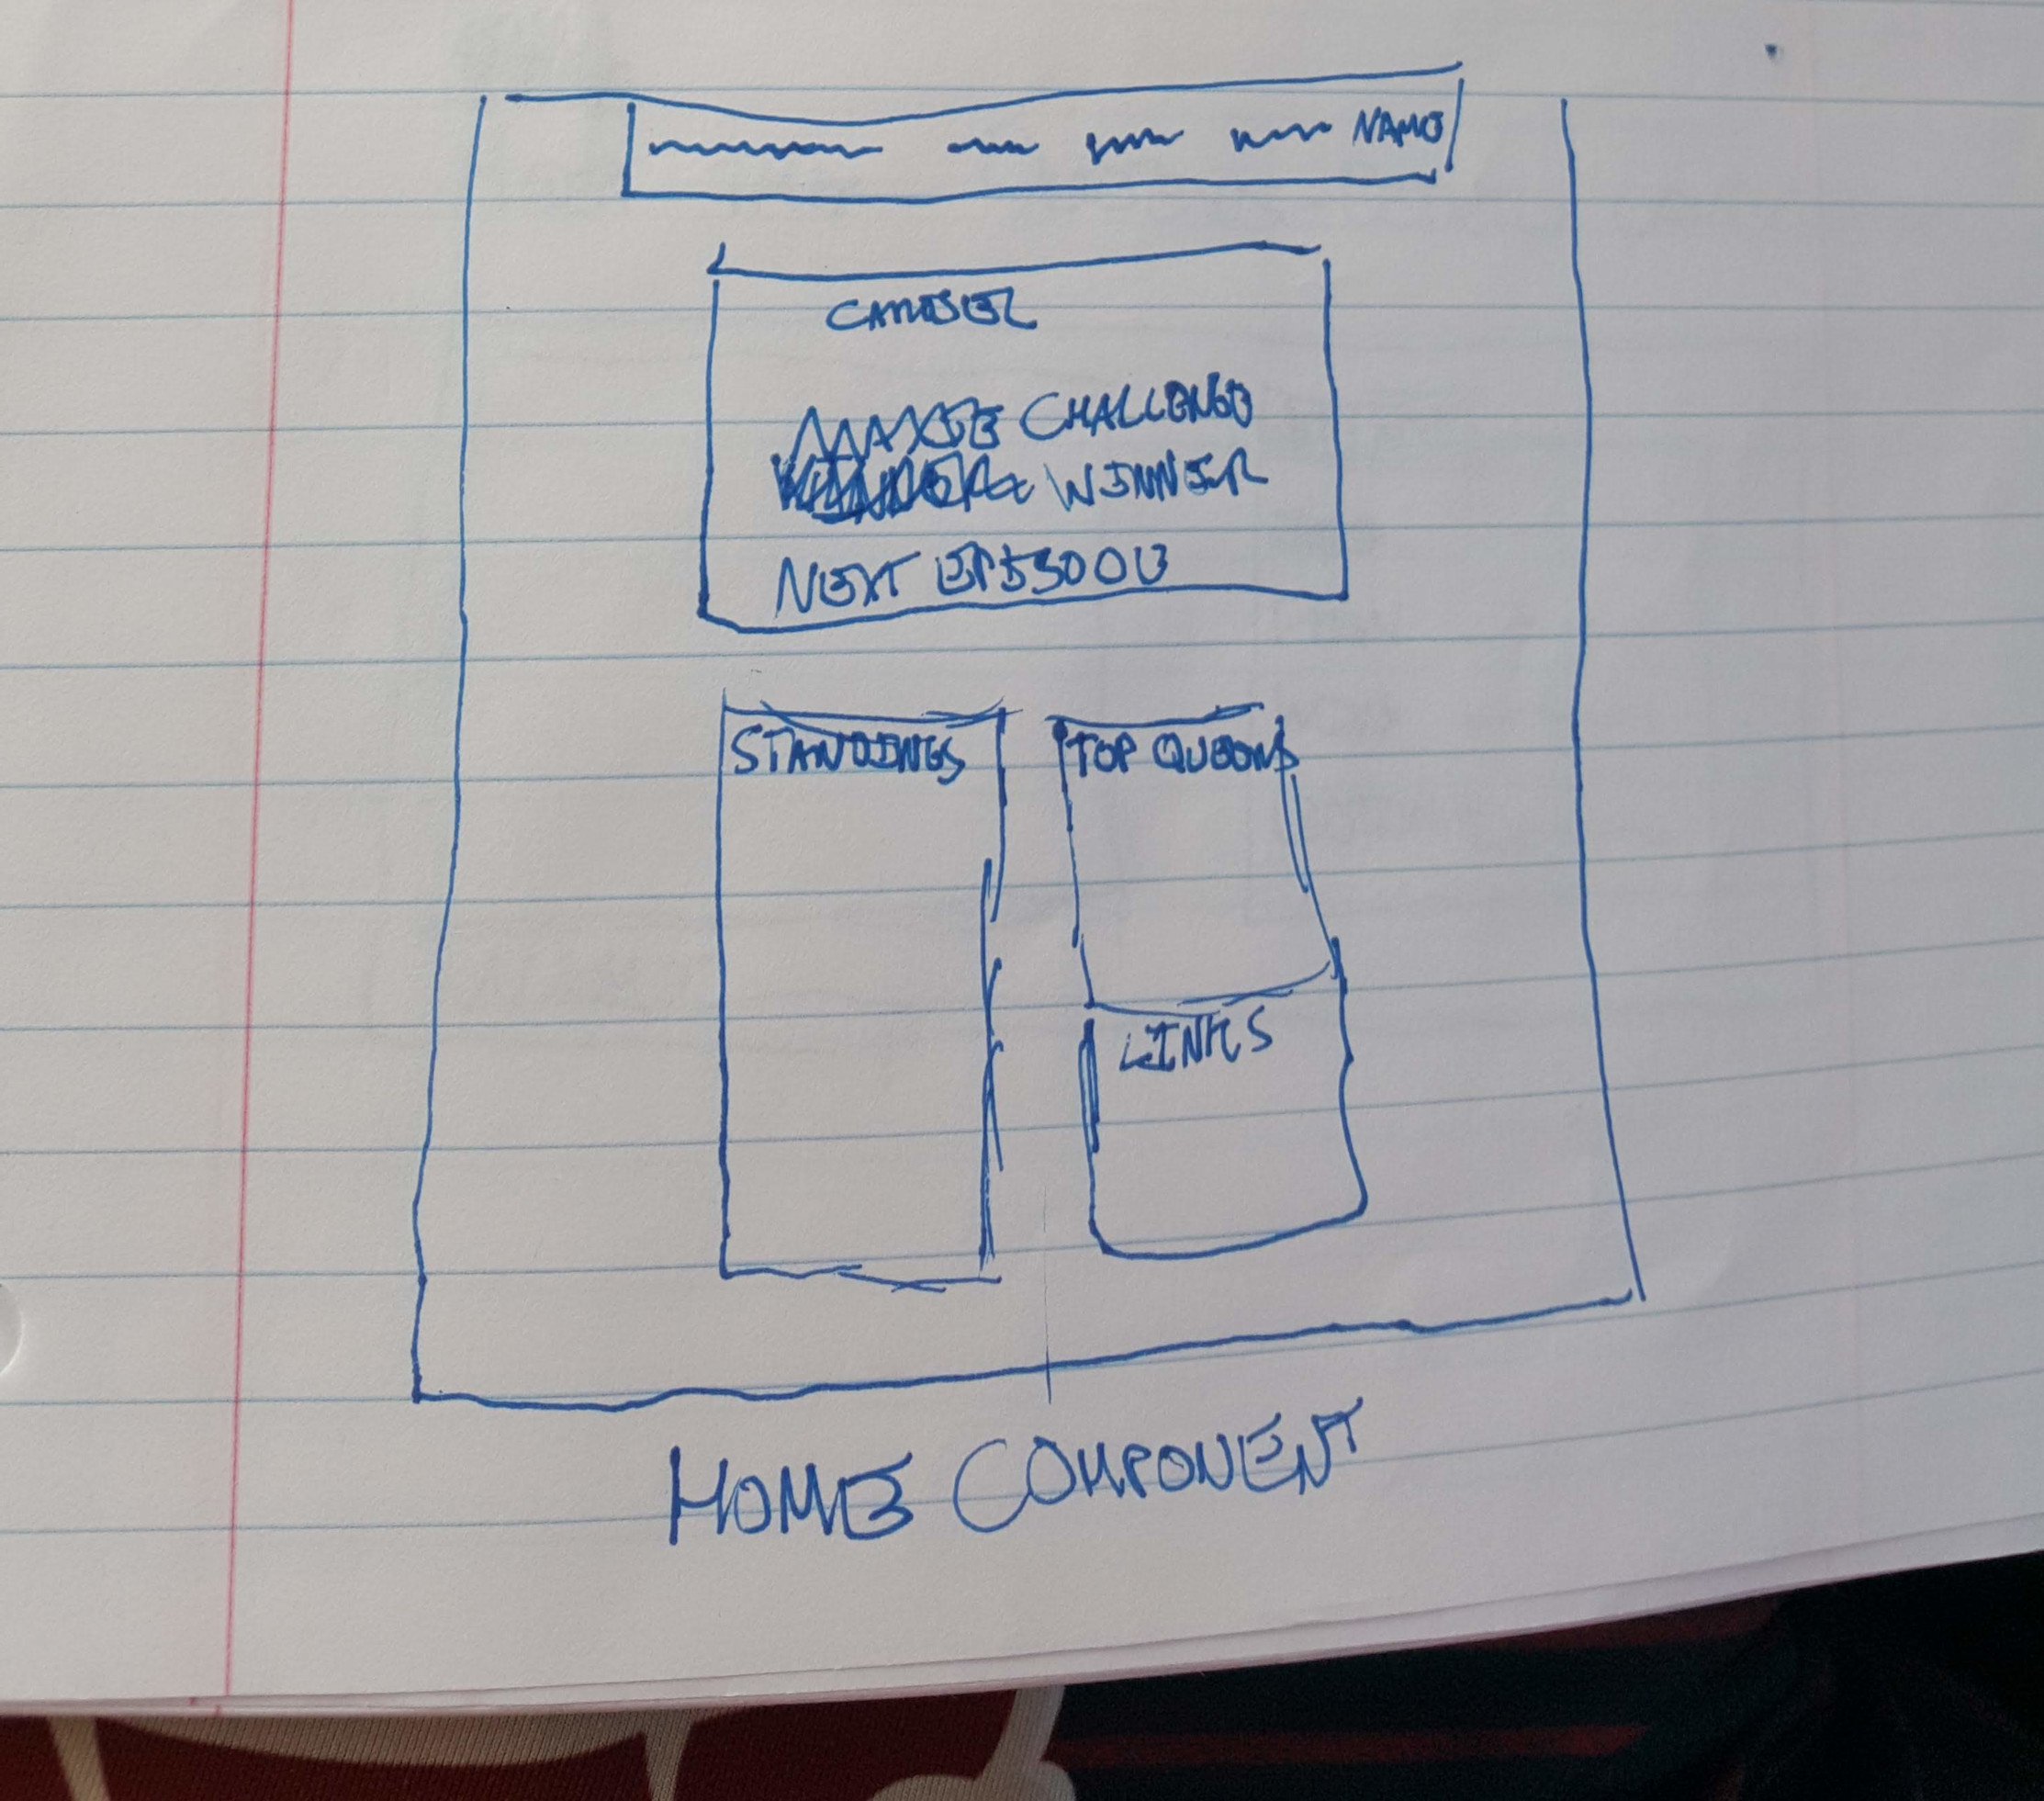 NAME
CAROSEL
MAXIE CHALLENGE
WINNER
NEXT EPISODE
STANDINGS
TOP QUEENS
LINKS
HOME COMPONENT